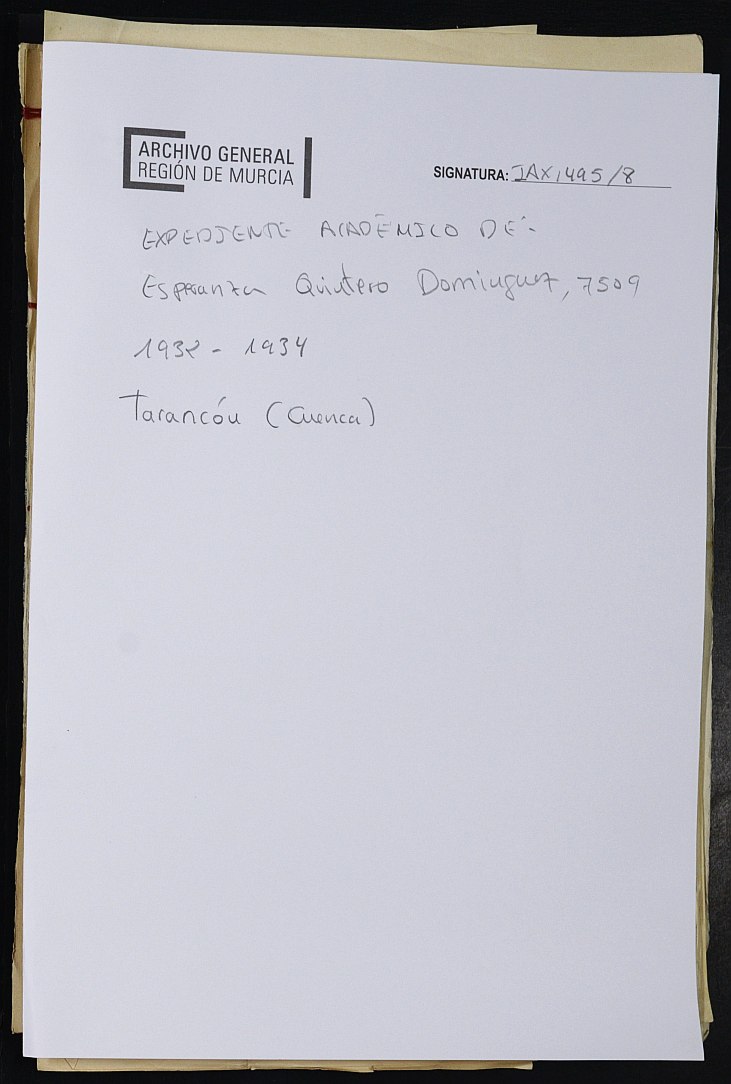 ARCHIVO GENERAL
REGIÓN DE MURCIA
SIGNATURA: IAX,1495/8
EXPEDIENTE ACADÉMICO DE:
Esperanza Quintero Dominguez, 7509
1932 - 1934
Tarancón (Cuenca)